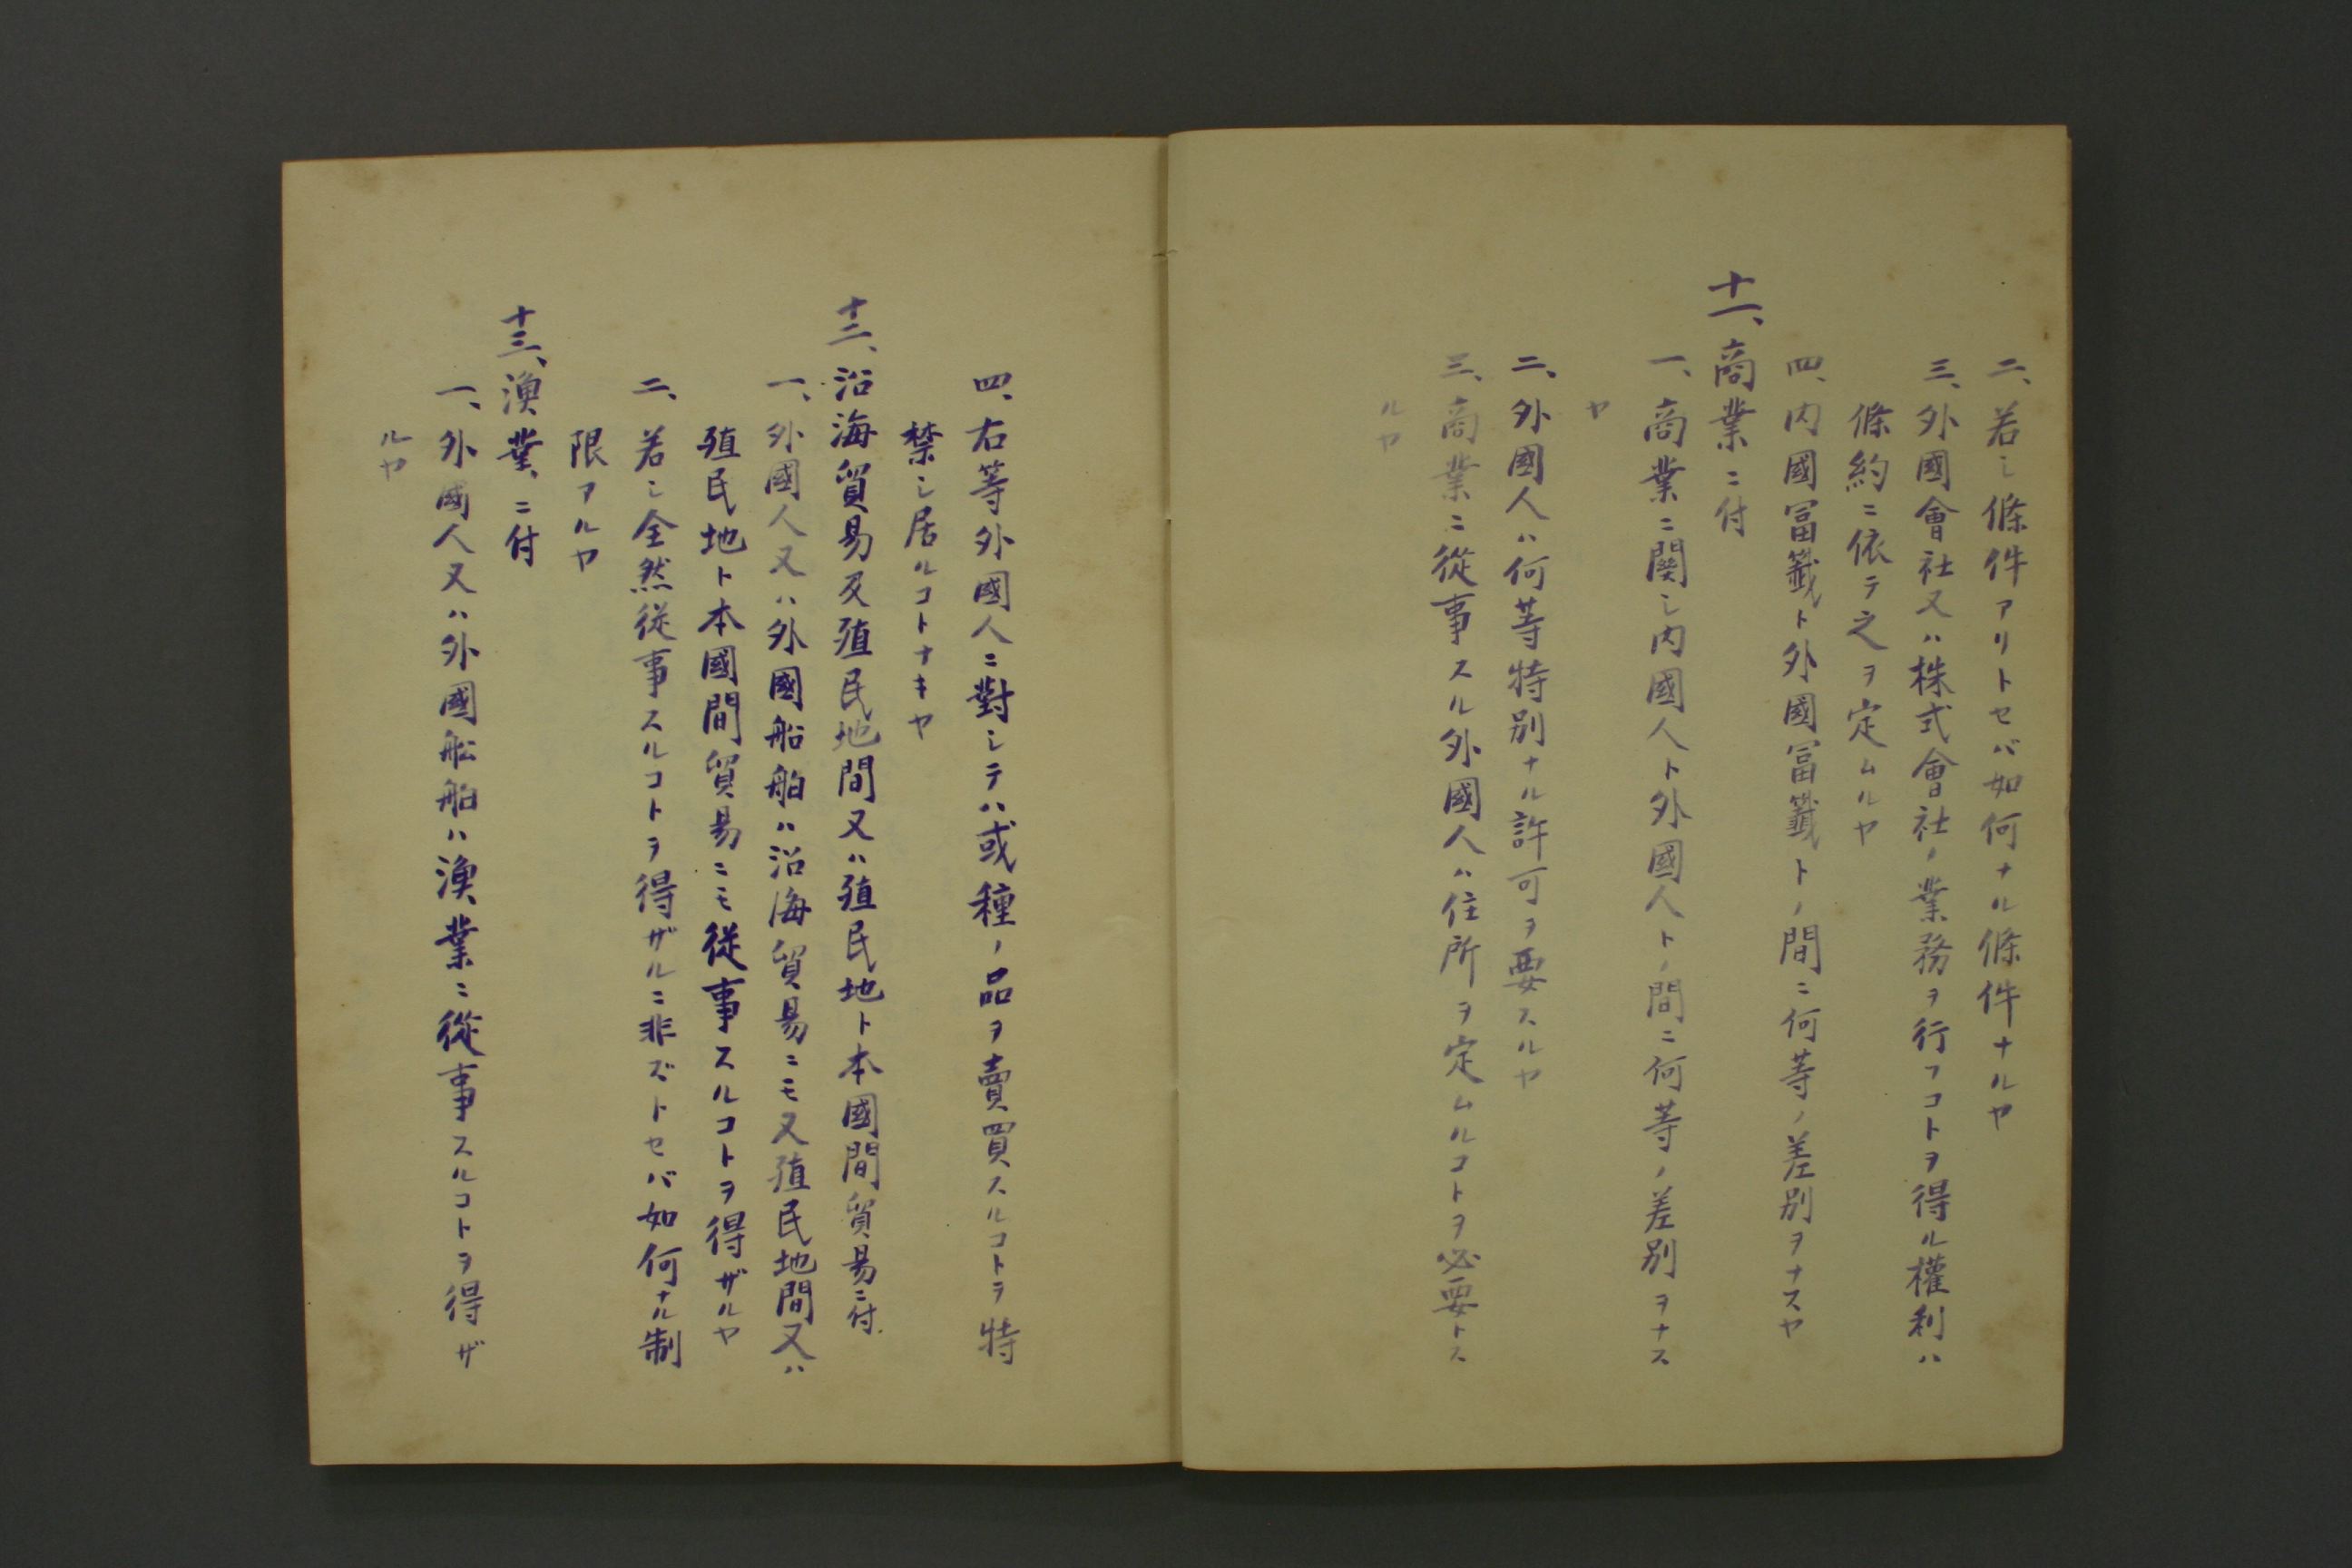 二、若シ條件アリトセバ如何ナル條件ナルヤ
三、外國會社又ハ株式會社ノ業務ヲ行フコトヲ得ル權利ハ
條約ニ依テ之ヲ定ムルヤ
四、内國冨籤ト外國冨籤トノ間ニ何等ノ差別ヲナスヤ
十一、商業ニ付
一、商業ニ関シ内國人ト外國人トノ間ニ何等ノ差別ヲナス
ヤ
二、外國人ハ何等特別ナル許可ヲ要スルヤ
三、商業ニ從事スル外國人ハ住所ヲ定ムルコトヲ必要トス
ルヤ
四、右等外國人ニ對シテハ或種ノ品ヲ賣買スルコトヲ特
禁シ居ルコトナキヤ
十二、沿海貿易及殖民地間又ハ殖民地ト本國間貿易ニ付
一、外國人又ハ外國船舶ハ沿海貿易ニモ又殖民地間又ハ
殖民地ト本國間貿易ニモ從事スルコトヲ得ザルヤ
二、若シ全然從事スルコトヲ得ザルニ非ズトセバ如何ナル制
限アルヤ
十三、漁業ニ付
一、外國人又ハ外國舩舶ハ漁業ニ從事スルコトヲ得ザ
ルヤ